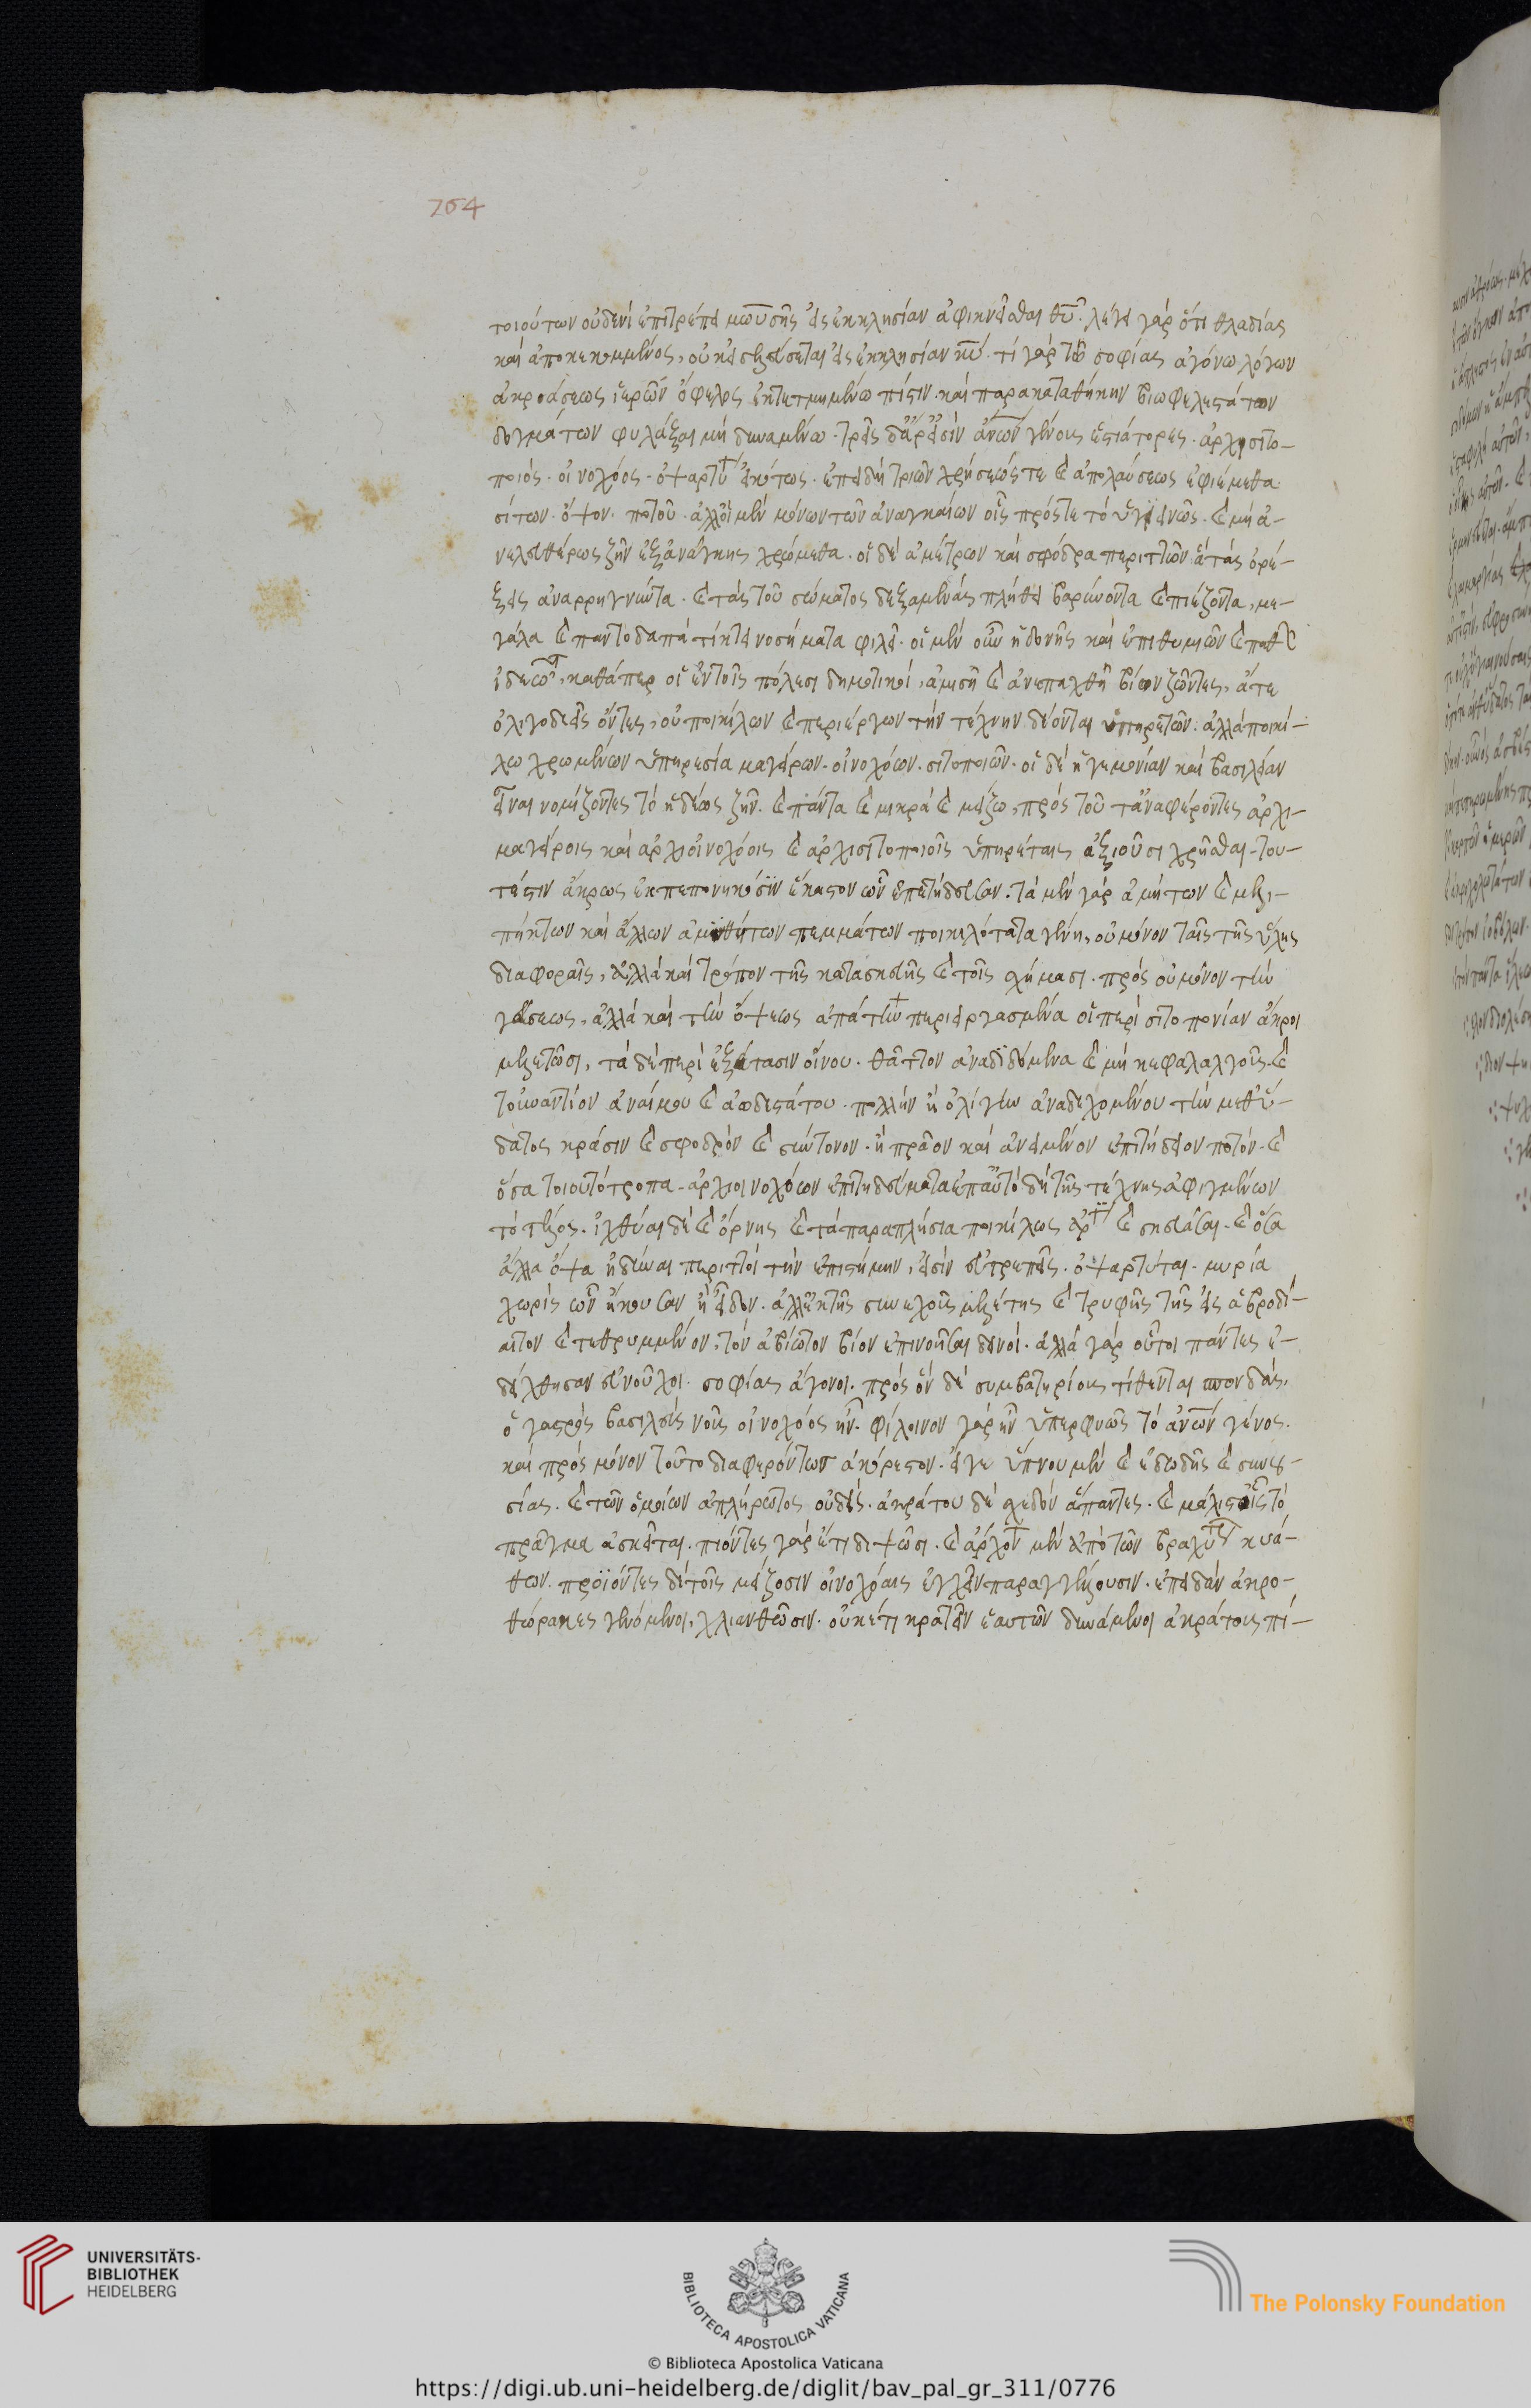 764
τοιούτων οὐδενὶ ἐπιτρέπει μωυσῆς εἰς ἐκκλησίαν ἀφικνεῖσθαι θῦ. λέγει γὰρ ὅτι θλαδίας
καὶ ἀποκεκομμένος, οὐκ εἰσελεύσεται εἰς ἐκκλησίαν κῦ. τί γὰρ τῶ σοφίας ἀγόνω λόγων
ἀκροάσεως ἱερῶν ὄφελος ἐκτετμημένω πίστιν καὶ παρακαταθήκην βιωφελεστάτων
δογμάτων φυλάξαι μὴ δυναμένω. τρεῖς δ' ἄρ' εἰσὶν ἀνων γένους ἑστιάτορες. ἀρχισιτο-
ποιὸς. οἰνοχόος. ὀψαρτυτὴς εἰκότως. ἐπειδὴ τριῶν χρήσεώς τε καὶ ἀπολαύσεως ἐφιέμεθα
σίτων. ὄψου. ποτοῦ. ἀλλ' οἱ μὲν μόνων τῶν ἀναγκαίων οἷς πρός τε τὸ ὑγιεινῶς. καὶ μὴ ἀ-
νελευθέρως ζῆν ἐξ ἀνάγκης χρώμεθα. οἱ δὲ ἀμέτρων καὶ σφόδρα περιττῶν ἃ τὰς ὀρέ-
ξεις ἀναρρηγνύντα. καὶ τὰς τοῦ σώματος δεξαμενὰς πλήθει βαρύνοντα καὶ πιέζοντα, με-
γάλα καὶ παντοδαπὰ τίκτειν νοσήματα φιλεῖ. οἱ μὲν οὖν ἡδονῆς καὶ ἐπιθυμιῶν καὶ παθῶν
ἰδιῶται, καθάπερ οἱ ἐν τοῖς πόλεσι δημοτικοὶ, ἀμισῆ καὶ ἀνεπαχθῆ βίον ζῶντες, ἅτε
ὀλιγοδεεῖς ὄντες, οὐ ποικίλων καὶ περιέργων τὴν τέχνην δέονται ὑπηρετῶν. ἀλλὰ ποικί-
λω χρωμένων ὑπηρεσία μαγείρων. οἰνοχόων. σιτοποιῶν. οἱ δὲ ἡγεμονίαν καὶ βασιλείαν
εἶναι νομίζοντες τὸ ἡδέως ζῆν. καὶ πάντα καὶ μικρὰ καὶ μείζω, πρὸς τοῦτ' ἀναφέροντες ἀρχι-
μαγείροις καὶ ἀρχιοινοχόοις καὶ ἀρχισιτοποιοῖς ὑπηρέταις ἀξιοῦσι χρῆσθαι. του-
τέστιν ἄκρως ἐκπεπονηκόσιν ἕκαστον ὧν ἐπετήδευσαν. τὰ μὲν γὰρ ἀμήτων καὶ μελι-
πήκτων καὶ ἄλλων ἀμυθήτων πεμμάτων ποικιλότατα γένη, οὐ μόνον ταῖς τῆς ὕλης
διαφοραῖς, ἀλλὰ καὶ τρόπον τῆς κατασκευῆς καὶ τοῖς σχήμασι. πρὸς οὐ μόνον τὴν
γεύσεως, ἀλλὰ καὶ τὴν ὄψεως ἀπάτην περιειργασμένα οἱ περὶ σιτοπονίαν ἄκροι
μελετῶσι, τὰ δὲ περὶ ἐξέτασιν οἴνου. θᾶττον ἀναδιδόμενα καὶ μὴ κεφαλαλγοῖς. καὶ
τοὐναντίον ἀναίμου καὶ εὐωδεστάτου. πολλὴν ἢ ὀλίγην ἀναδεχομένου τὴν μεθ' ὕ-
δατος κράσιν καὶ σφοδρὸν καὶ σύντονον. ἢ πρᾶον καὶ ἀνειμένον ἐπιτήδειον ποτόν. καὶ
ὅσα τοιουτότροπα. ἀρχιοινοχόων ἐπιτηδεύματα ἐπ' αὐτὸ δὴ τῆς τέχνης ἀφιγμένων
τὸ τέλος. ἰχθύας δὲ καὶ ὄρνεις καὶ τὰ παραπλήσια ποικίλως ἀρτῦσαι καὶ σκευάσαι. καὶ ὅσα
ἄλλα ὄψα ἡδῦναι περιττοὶ τὴν ἐπιστήμην, εἰσὶν εὐτρεπεῖς. ὀψαρτυταὶ. μυρία
χωρὶς ὧν ἤκουσαν ἢ εἶδον. ἀλλ' ἐκ τῆς συνεχοῦς μελέτης καὶ τρυφῆς τῆς εἰς ἁβροδί-
αιτον καὶ τεθρυμμένον, τὸν ἀβίωτον βίον ἐπινοῆσαι δεινοί. ἀλλὰ γὰρ οὗτοι πάντες ἐ-
δείχθησαν εὐνοῦχοι. σοφίας ἄγονοι. πρὸς ὃν δὲ συμβατηρίους τίθενται σπονδὰς.
ὁ γαστρὸς βασιλεὺς νοῦς οἰνοχόος ἦν. φίλοινον γὰρ ἦν ὑπερφυῶς τὸ ἀνων γένος.
καὶ πρὸς μόνον τοῦτο διαφερόντως ἀκόρεστον. εἴγε ὕπνου μὲν καὶ ἐδωδῆς καὶ συνου-
σίας. καὶ τῶν ὁμοίων ἀπλήρωτος οὐδεὶς. ἀκράτου δὲ σχεδὸν ἅπαντες. καὶ μάλιστα οἷς τὸ
πρᾶγμα ἀσκεῖται. πιόντες γὰρ ἔτι διψῶσι. καὶ ἄρχονται μὲν ἀπὸ τῶν βραχυτέρων κυά-
θων. προϊόντες δὲ τοῖς μείζοσιν οἰνοχόαις ἐγχεῖν παραγγέλλουσιν. ἐπειδὰν ἀκρο-
θώρακες γενόμενοι, χλιανθῶσιν. οὐκέτι κρατεῖν ἑαυτῶν δυνάμενοι ἀκράτους πί-
UNIVERSITÄTS-
BIBLIOTHEK
HEIDELBERG
BIBLIOTECA APOSTOLICA VATICANA
The Polonsky Foundation
© Biblioteca Apostolica Vaticana
https://digi.ub.uni-heidelberg.de/diglit/bav_pal_gr_311/0776